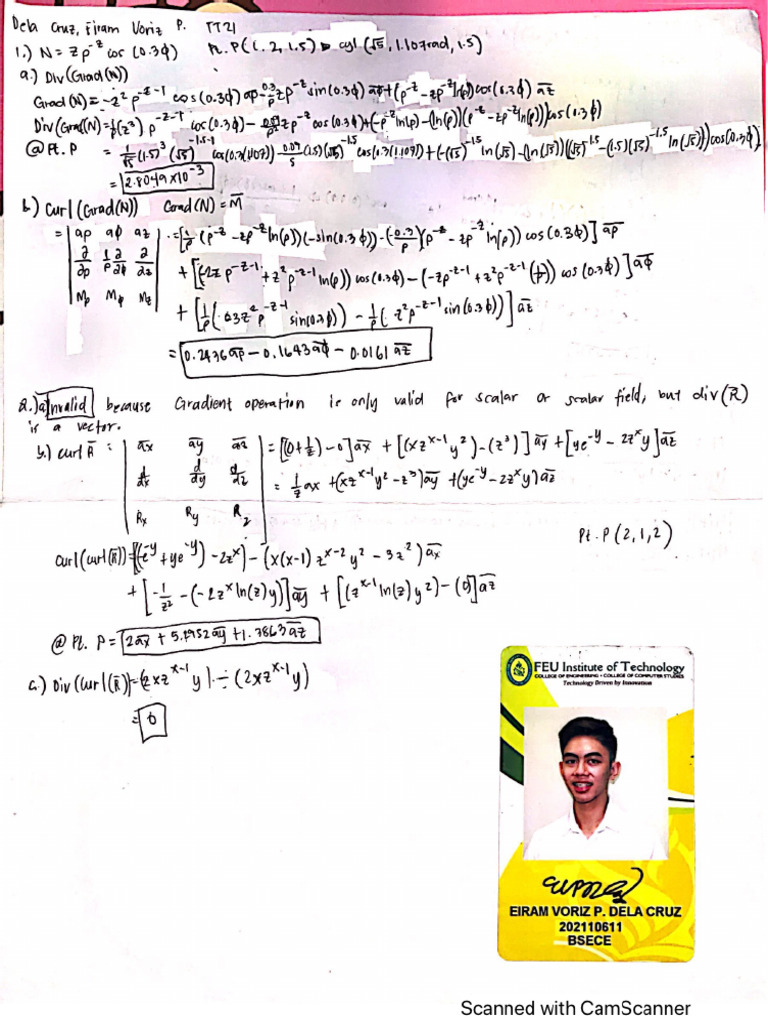 Dela Cruz, Eiram Voriz P. TT21
1.) N = zρ^-z cos(0.3ϕ) Pt. P(1, 2, 1.5) → cyl(√5, 1.107rad, 1.5)
a.) Div(Grad(N))
Grad(N) = -z²ρ^-z-1 cos(0.3ϕ) aρ - 0.3/ρ zρ^-z sin(0.3ϕ) aϕ + (ρ^-z - zρ^-z ln(ρ)) cos(0.3ϕ) az
Div(Grad(N)) = 1/ρ(z³) ρ^-z-1 cos(0.3ϕ) - 0.09/ρ² zρ^-z cos(0.3ϕ) + (-ρ^-z ln(ρ) - (ln(ρ))(ρ^-z - zρ^-z ln(ρ))) cos(0.3ϕ)
@ Pt. P = 1/√5 (1.5)³ (√5)^-1.5-1 cos(0.3(1.107)) - 0.09/5 (1.5)(√5)^-1.5 cos(0.3(1.107)) + (-(√5)^-1.5 ln(√5) - (ln(√5))((√5)^-1.5 - (1.5)(√5)^-1.5 ln(√5))) cos(0.3ϕ)
= 2.8049 x10^-3
b.) Curl(Grad(N)) Grad(N) = M
= | aρ aϕ az | = [1/ρ (ρ^-z - zρ^-z ln(ρ))(-sin(0.3ϕ)) - (0.3/ρ)(ρ^-z - zρ^-z ln(ρ)) cos(0.3ϕ)] aρ
∂/∂ρ 1/ρ ∂/∂ϕ ∂/∂z + [(-2zρ^-z-1 + z²ρ^-z-1 ln(ρ)) cos(0.3ϕ) - (-zρ^-z-1 + z²ρ^-z-1 (1/ρ)) cos(0.3ϕ)] aϕ
Mρ Mϕ Mz + [1/ρ(0.3z²ρ^-z-1 sin(0.3ϕ)) - 1/ρ(z²ρ^-z-1 sin(0.3ϕ))] az
= 0.2436 aρ - 0.1643 aϕ - 0.0161 az
2.) a) Invalid because Gradient operation is only valid for scalar or scalar field, but div(R)
is a vector.
b.) curl R = | ax ay az | = [(0 + 1/z) - 0] ax + [(xz^x-1 y²) - (z³)] ay + [ye^-y - 2z^x y] az
d/dx d/dy d/dz = 1/z ax + (xz^x-1 y² - z³) ay + (ye^-y - 2z^x y) az
Rx Ry Rz
Pt. P(2, 1, 2)
curl(curl(R)) = [(-e^-y + ye^-y) - 2z^x) - (x(x-1) z^x-2 y² - 3z²) ax
+ [-1/z² - (-2z^x ln(z) y)] ay + [(z^x-1 ln(z) y²) - (0)] az
@ Pt. P = 2ax + 5.2952 ay + 1.3863 az
c.) Div(curl(R)) = (2xz^x-1 y) - (2xz^x-1 y)
= 0
FEU Institute of Technology
COLLEGE OF ENGINEERING • COLLEGE OF COMPUTER STUDIES
Technology Driven by Innovation
EIRAM VORIZ P. DELA CRUZ
202110611
BSECE
Scanned with CamScanner